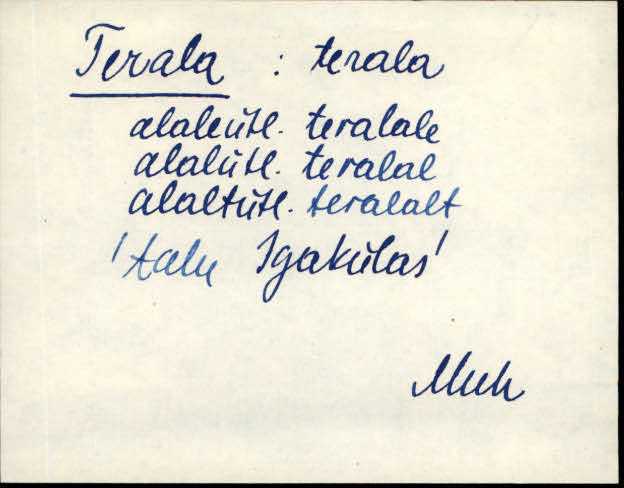 Terala : terala
alaleütl. teralale
alalütl. teralal
alaltütl. teralalt
'talu Igaküla's'
Muh